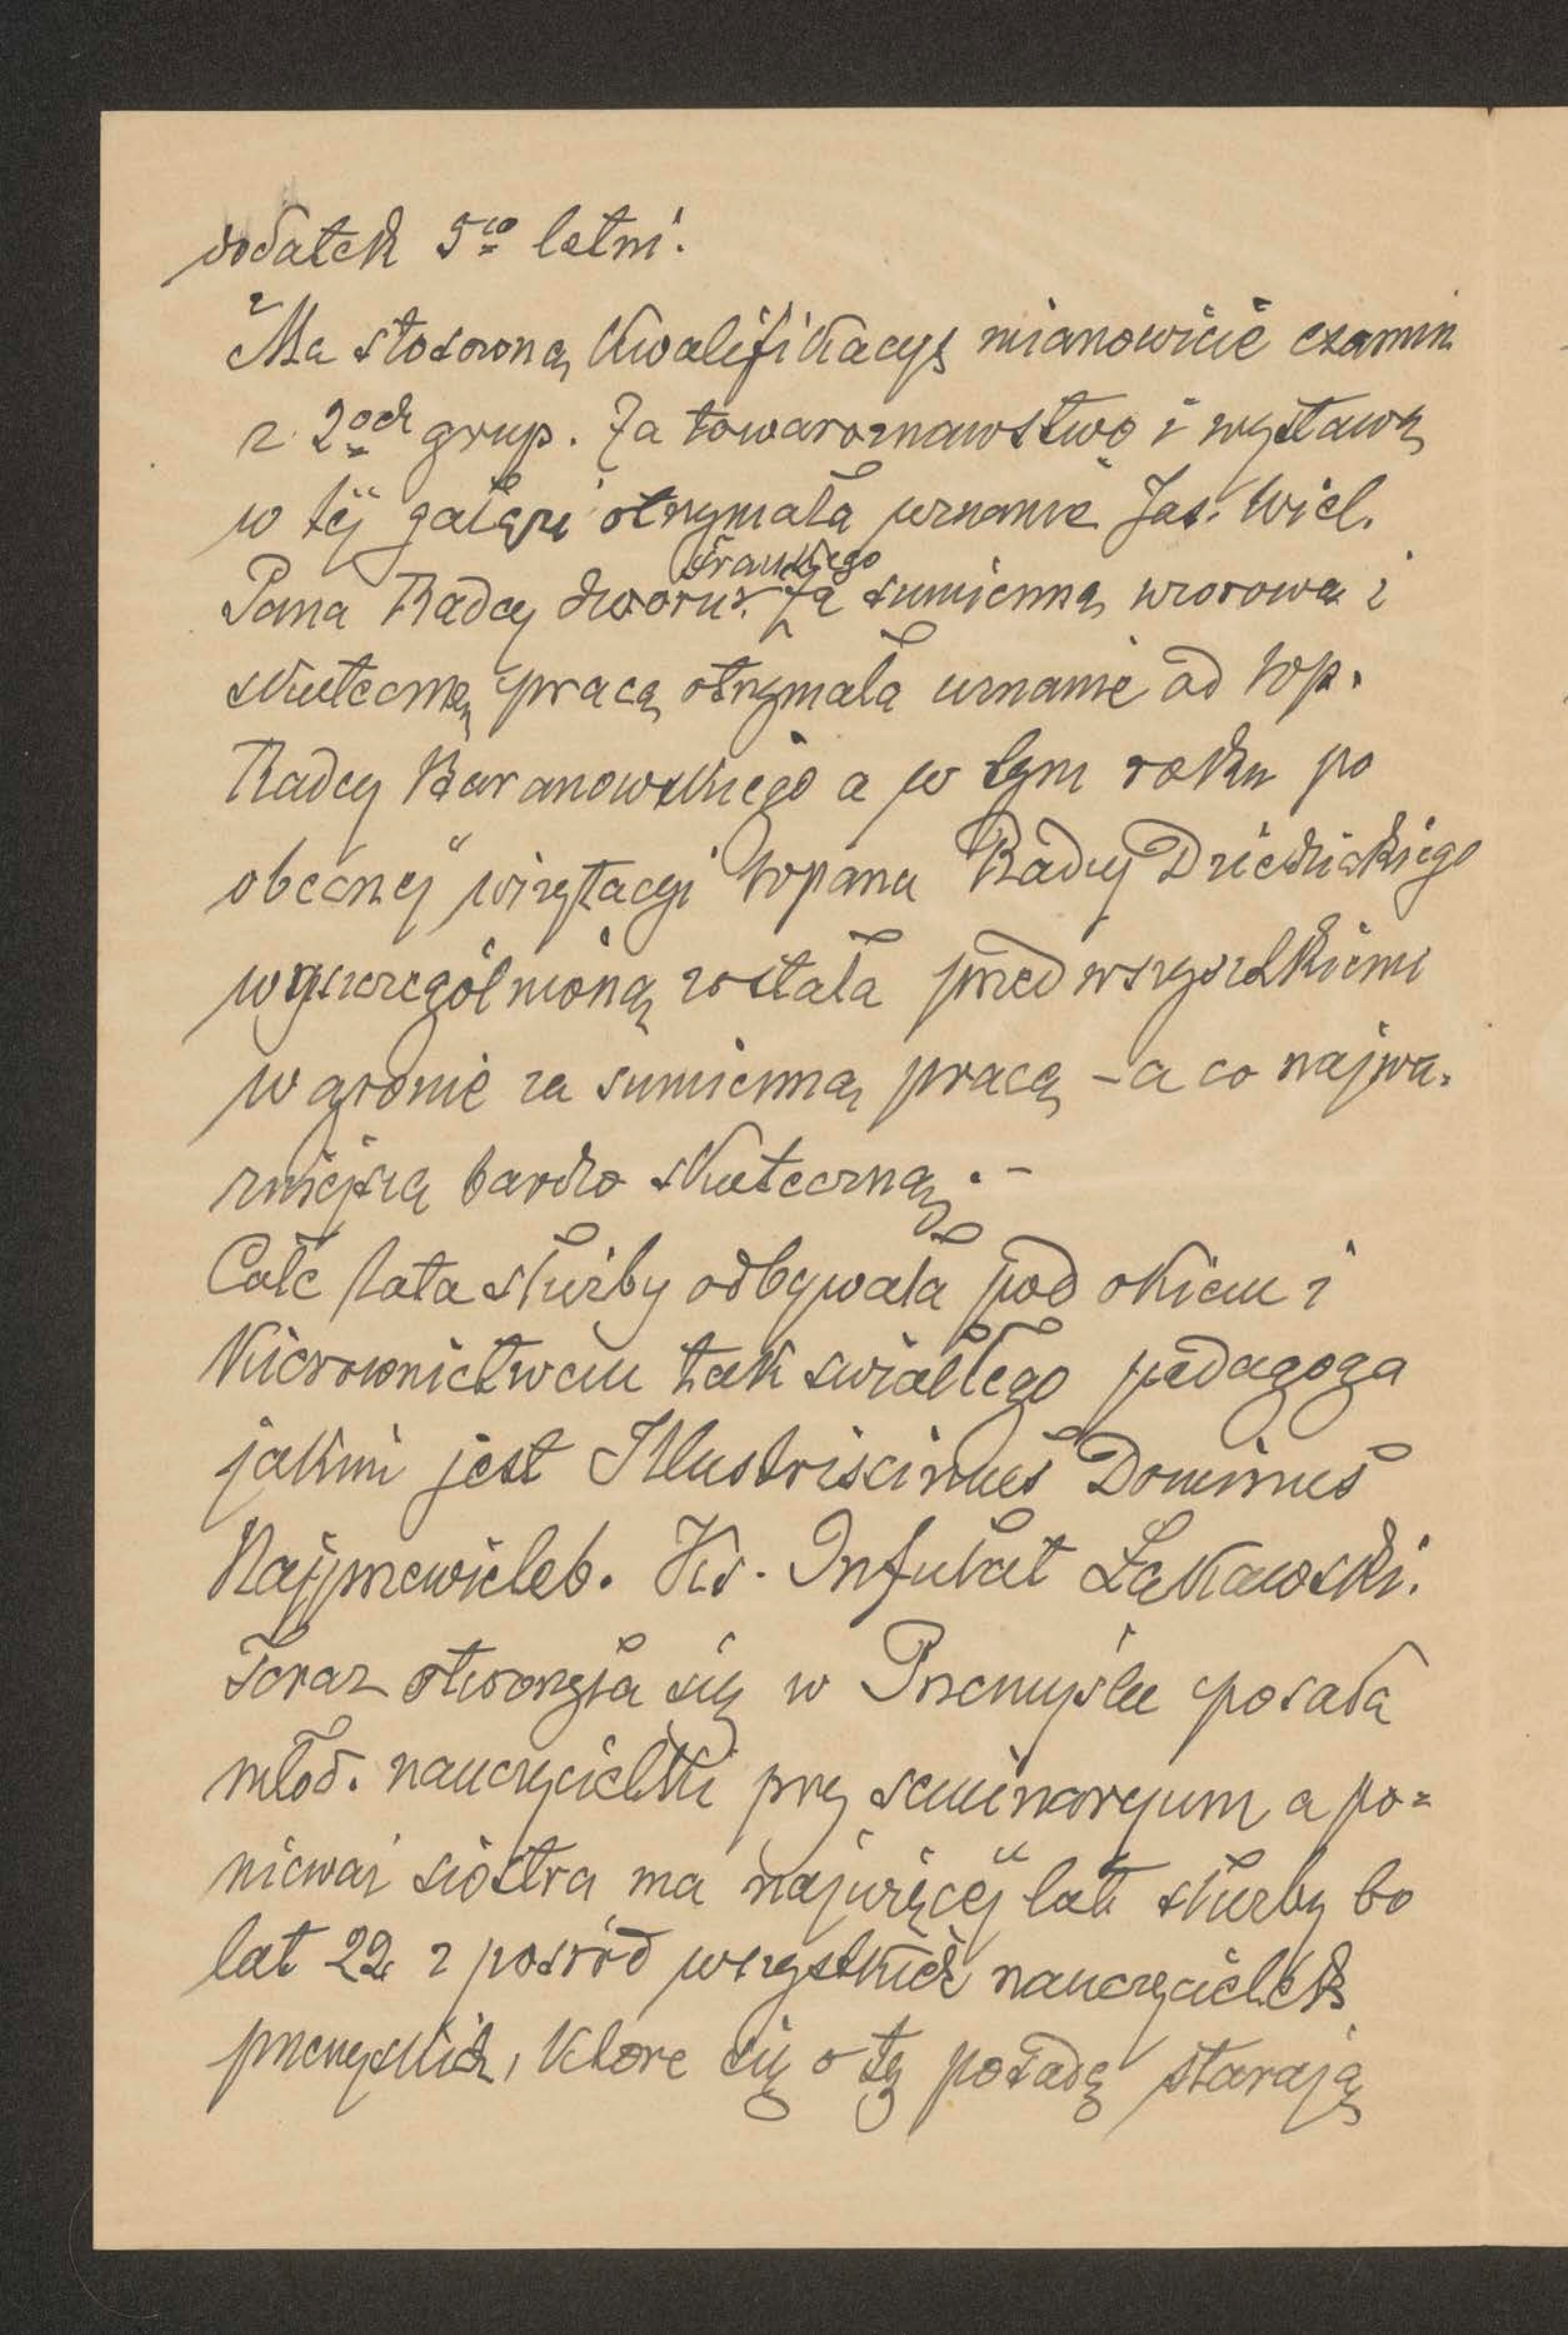 dodatek 5cio letni.
Ma stosowną kwalifikacyę mianowicie exzamin
z 2och grup. Za towaroznawstwo i wystawę
w téj gałęzi otrzymała uznanie Jaś. Wiel.
Frankego
Pana Radcy dworu. Za sumienną wzorową i
skuteczną pracą otrzymała uznanie od Wp.
Radcy Baranowskiego a w tym roku po
obecnéj wizytacyi Wpana Radcy Dziedzickiego
wyszczególnioną została przed wszystkiemi
w gronie za sumienną pracą - a co najwa-
żniejszą bardzo skuteczną. -
Całe lata służby odbywała pod okiem i
kierownictwem tak swiatłego pedagoga
jakim jest Illustrissimus Dominus
Najprzewieleb. Ks. Infułat Łękawski.
Teraz otworzyła się w Przemyślu posada
młod. nauczycielki przy seminaryum a po-
nieważ siostra ma najwięcéj lat służby bo
lat 22 z posród wszystkich nauczycielek
przemyskich, które się o tę posadę starają